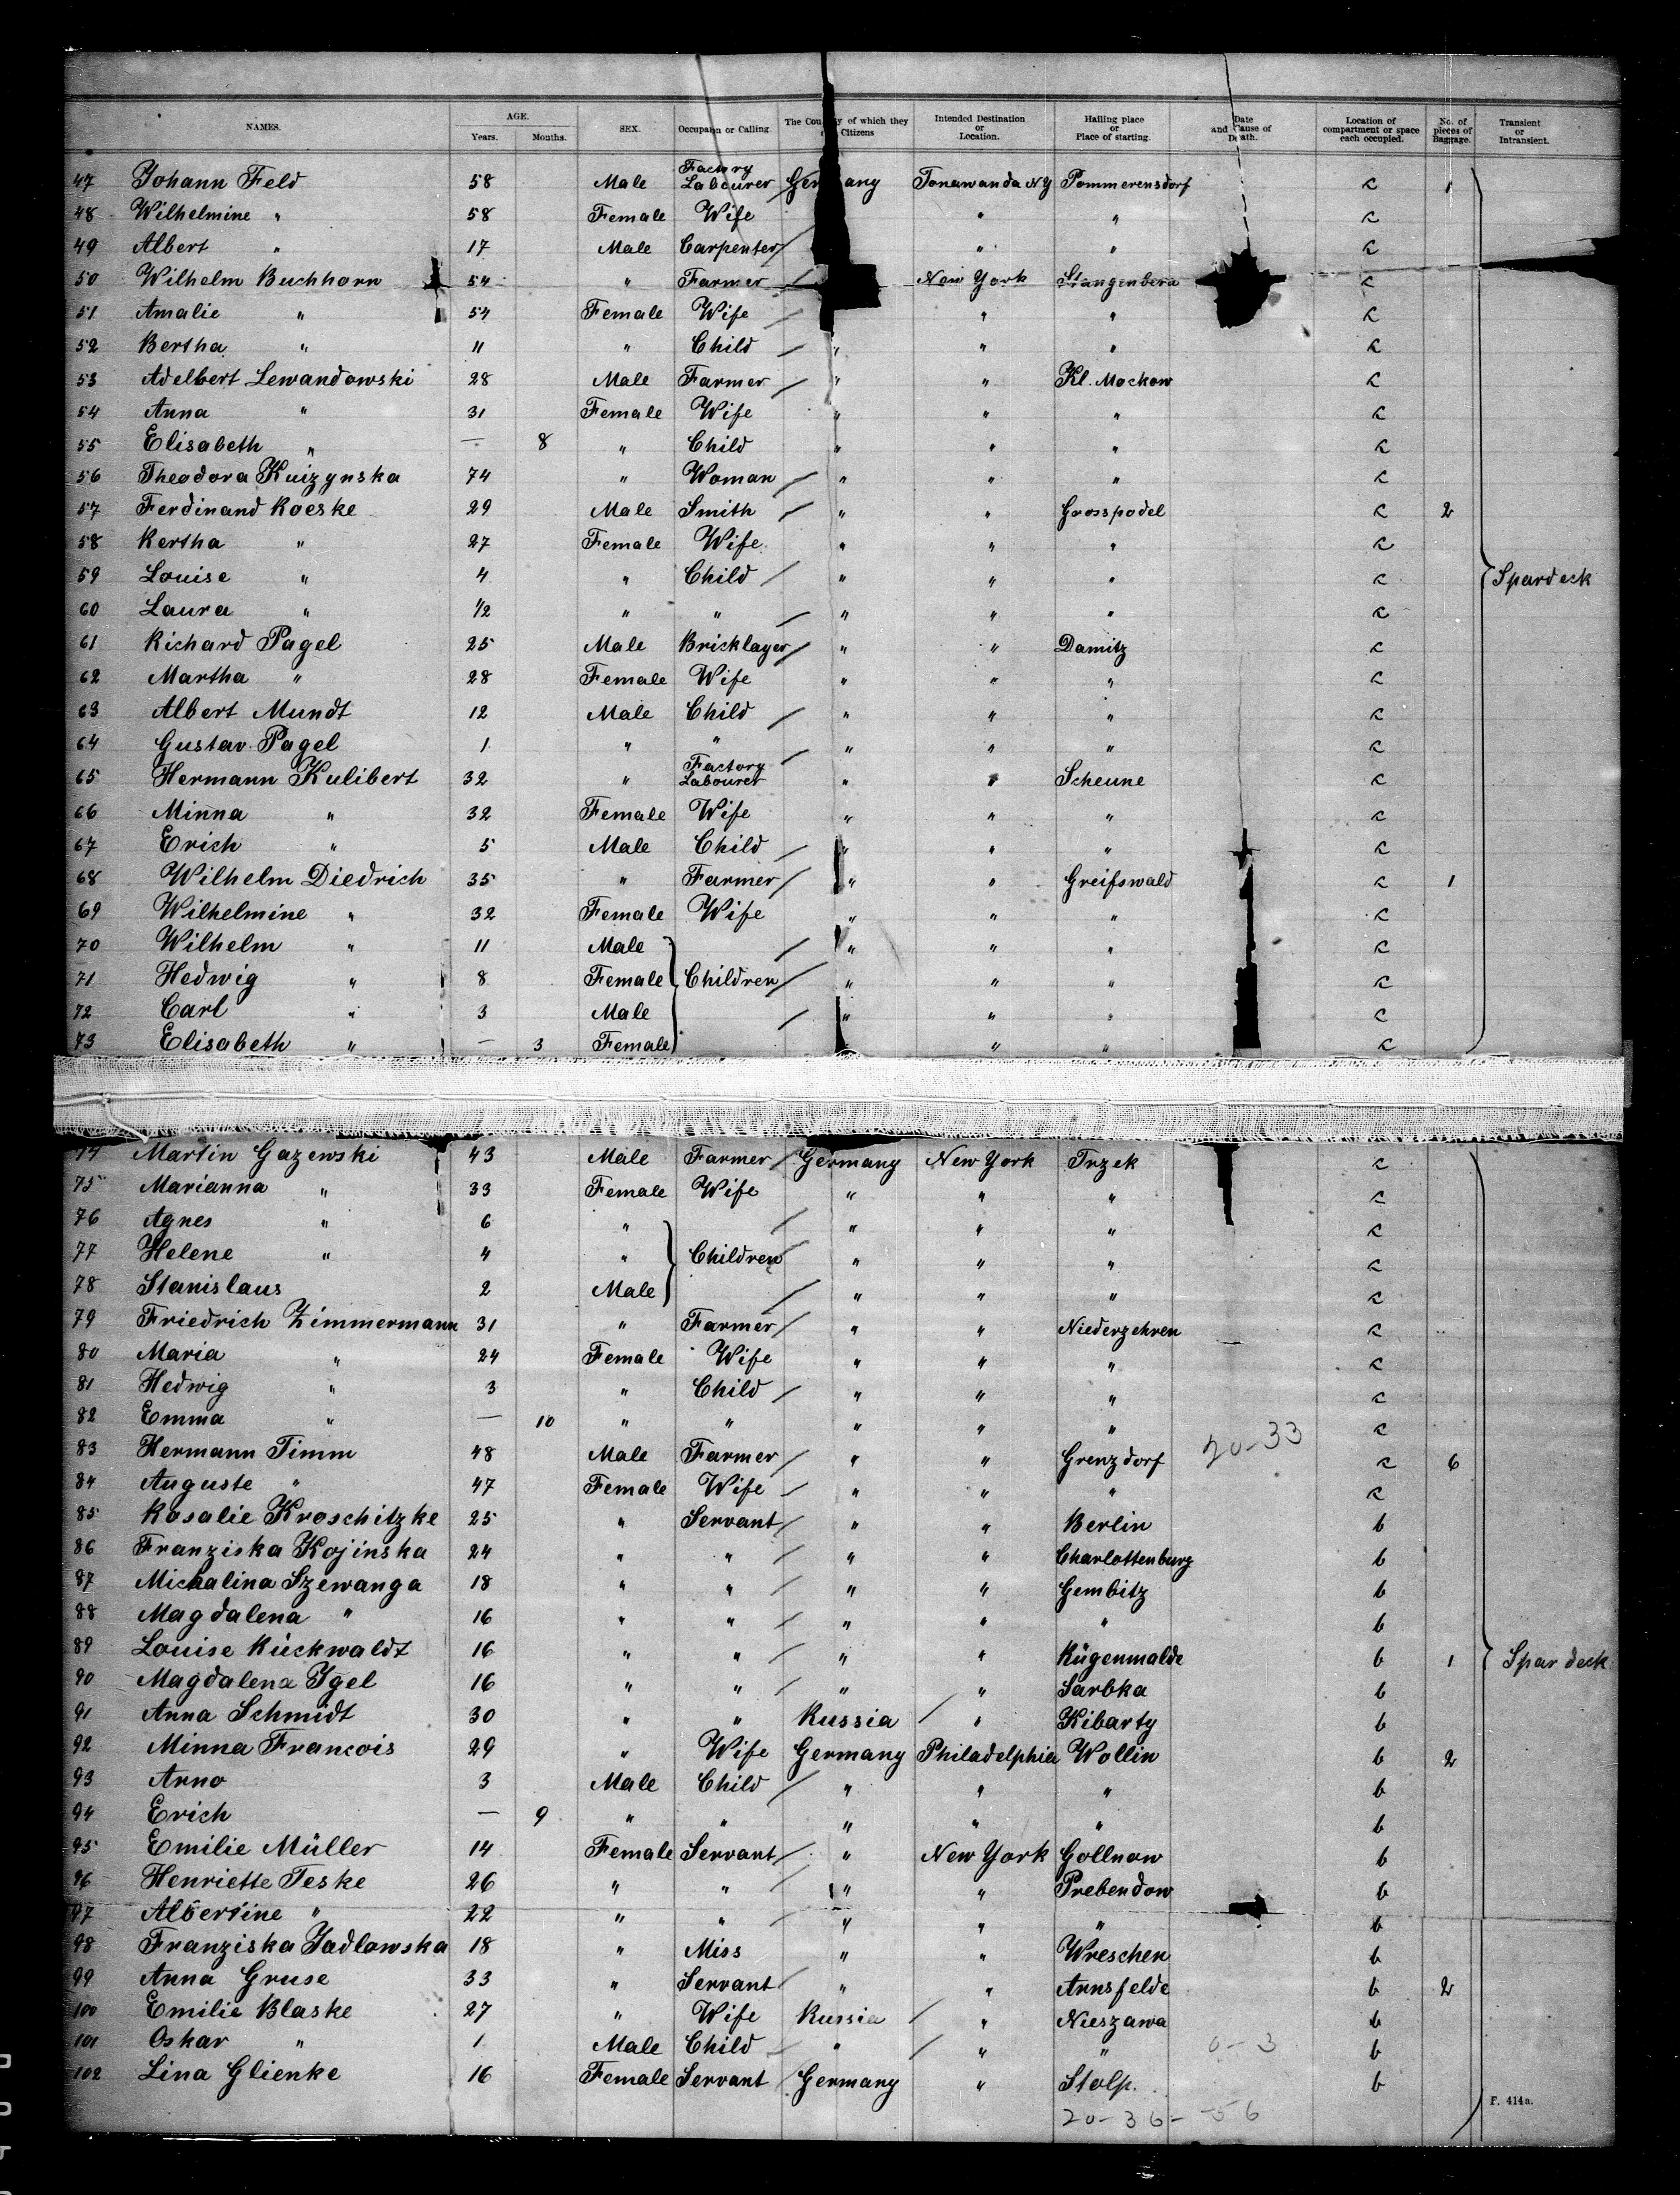 NAMES. AGE. Years. Months. SEX. Occupation or Calling. The Country of which they are Citizens Intended Destination or Location. Hailing place or Place of starting. Date and Cause of Death. Location of compartment or space each occupied. No. of pieces of Baggage. Transient or Intransient.
47 Johann Feld 58 Male Factory Labourer Germany Tonawanda NY Pommerensdorf c 1
48 Wilhelmine " 58 Female Wife " " c
49 Albert " 17 Male Carpenter / " " c
50 Wilhelm Buchhorn 54 " Farmer / New York Stangenberg c
51 Amalie " 54 Female Wife / " " c
52 Bertha " 11 " Child / " " " c
53 Adelbert Lewandowski 28 Male Farmer / " " Kl. Mockow c
54 Anna " 31 Female Wife " " " c
55 Elisabeth " — 8 " Child " " " c
56 Theodora Kuizynska 74 " Woman / " " " c
57 Ferdinand Roeske 29 Male Smith / " " Grosspodel c 2
58 Bertha " 27 Female Wife " " " c
59 Louise " 4 " Child / " " " c Spardeck
60 Laura " 1/2 " " / " " " c
61 Richard Pagel 25 Male Bricklayer / " " Damitz c
62 Martha " 28 Female Wife " " " c
63 Albert Mundt 12 Male Child / " " " c
64 Gustav Pagel 1 " " / " " " c
65 Hermann Kulibert 32 " Factory Labourer " " Scheune c
66 Minna " 32 Female Wife " " " c
67 Erich " 5 Male Child / " " " c
68 Wilhelm Diedrich 35 " Farmer / " " Greifswald c 1
69 Wilhelmine " 32 Female Wife " " " c
70 Wilhelm " 11 Male / " " " c
71 Hedwig " 8 Female Children / " " " c
72 Carl " 3 Male / " " " c
73 Elisabeth " — 3 Female " " c
74 Martin Gazewski 43 Male Farmer / Germany New York Trzek c
75 Marianna " 33 Female Wife " " " c
76 Agnes " 6 " / " " " c
77 Helene " 4 " Children / " " " c
78 Stanislaus 2 Male / " " " c
79 Friedrich Zimmermann 31 " Farmer / " " Niederzehren c
80 Maria " 24 Female Wife " " " c
81 Hedwig " 3 " Child / " " " c
82 Emma " — 10 " " " " " c
83 Hermann Timm 48 Male Farmer / " " Grenzdorf 20-33 c 6
84 Auguste " 47 Female Wife / " " " c
85 Rosalie Kroschitzke 25 " Servant / " " Berlin b
86 Franziska Kojinska 24 " " / " " Charlottenburg b
87 Michalina Szewanga 18 " " / " " Gembitz b
88 Magdalena " 16 " " / " " " b
89 Louise Rückwaldt 16 " " / " " Rügenwalde b 1 Spardeck
90 Magdalena Igel 16 " " / " " Sarbka b
91 Anna Schmidt 30 " " Russia / " Kibarty b
92 Minna Francois 29 " Wife Germany Philadelphia Wollin b 2
93 Arno 3 Male Child / " " " b
94 Erich — 9 " " " " " b
95 Emilie Müller 14 Female Servant / " New York Gollnow b
96 Henriette Teske 26 " " / " " Prebendow b
97 Albertine " 22 " " / " " " b
98 Franziska Jadlowska 18 " Miss " " Wreschen b
99 Anna Gruse 33 " Servant / " " Arnsfelde b 2
100 Emilie Blaske 27 " Wife Russia / " Nieszawa b
101 Oskar " 1 Male Child / " / " " 0-3 b
102 Lina Glienke 16 Female Servant / Germany " Stolp. b
F. 414a.
20-36- -56